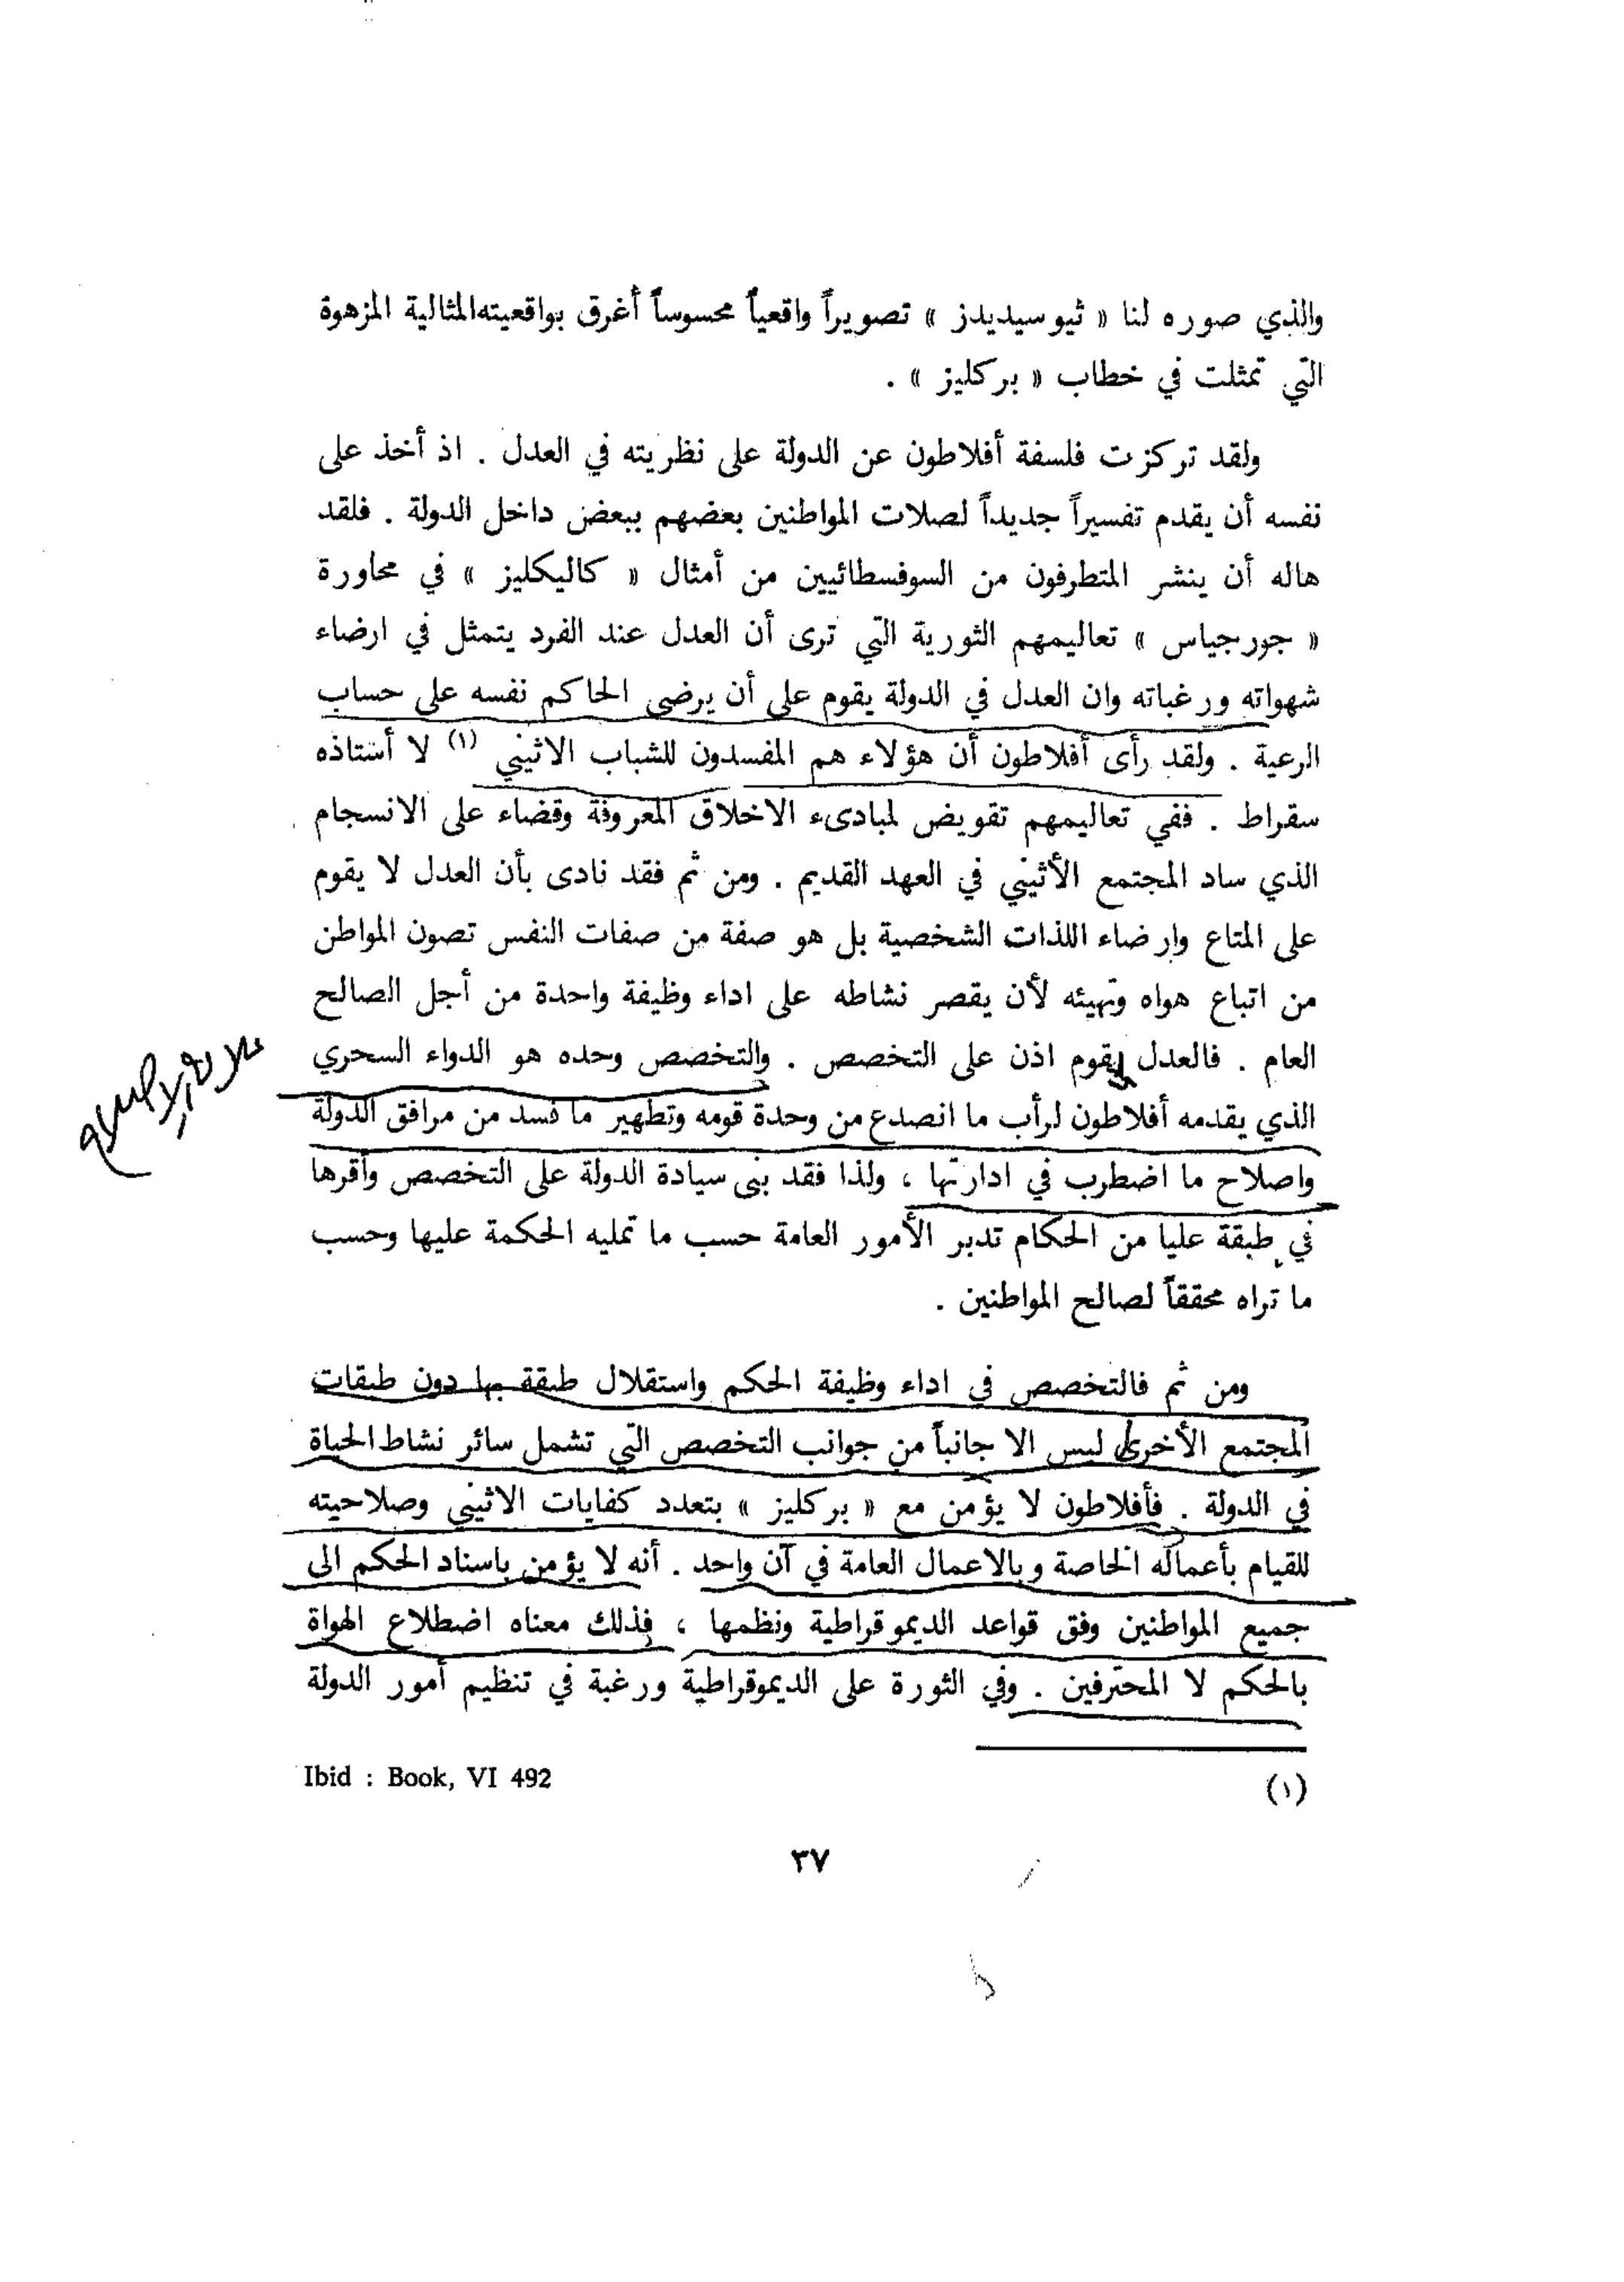 والذي صوره لنا « ثيوسيديدز » تصويراً واقعياً محسوساً أغرق بواقعيته المثالية المزهوة
التي تمثلت في خطاب « بركليز » .
ولقد تركزت فلسفة أفلاطون عن الدولة على نظريته في العدل . اذ أخذ على
نفسه أن يقدم تفسيراً جديداً لصلات المواطنين بعضهم ببعض داخل الدولة . فلقد
هاله أن ينشر المتطرفون من السوفسطائيين من أمثال « كاليكليز » في محاورة
« جورجياس » تعاليمهم الثورية التي ترى أن العدل عند الفرد يتمثل في ارضاء
شهواته ورغباته وان العدل في الدولة يقوم على أن يرضى الحاكم نفسه على حساب
الرعية . ولقد رأى أفلاطون أن هؤلاء هم المفسدون للشباب الاثيني (١) لا أستاذه
سقراط . ففي تعاليمهم تقويض لمبادىء الاخلاق المعروفة وقضاء على الانسجام
الذي ساد المجتمع الأثيني في العهد القديم . ومن ثم فقد نادى بأن العدل لا يقوم
على المتاع وارضاء اللذات الشخصية بل هو صفة من صفات النفس تصون المواطن
من اتباع هواه وتهيئه لأن يقصر نشاطه على اداء وظيفة واحدة من أجل الصالح
العام . فالعدل يقوم اذن على التخصص . والتخصص وحده هو الدواء السحري
الذي يقدمه أفلاطون لرأب ما انصدع من وحدة قومه وتطهير ما فسد من مرافق الدولة
واصلاح ما اضطرب في ادارتها ، ولذا فقد بنى سيادة الدولة على التخصص وأقرها
في طبقة عليا من الحكام تدبر الأمور العامة حسب ما تمليه الحكمة عليها وحسب
ما تراه محققاً لصالح المواطنين .
ومن ثم فالتخصص في اداء وظيفة الحكم واستقلال طبقة بها دون طبقات
المجتمع الأخرى ليس الا جانباً من جوانب التخصص التي تشمل سائر نشاط الحياة
في الدولة . فأفلاطون لا يؤمن مع « بركليز » بتعدد كفايات الاثيني وصلاحيته
للقيام بأعماله الخاصة وبالاعمال العامة في آن واحد . أنه لا يؤمن باسناد الحكم الى
جميع المواطنين وفق قواعد الديموقراطية ونظمها ، فذلك معناه اضطلاع الهواة
بالحكم لا المحترفين . وفي الثورة على الديموقراطية ورغبة في تنظيم أمور الدولة
(١) Ibid : Book, VI 492
٣٧